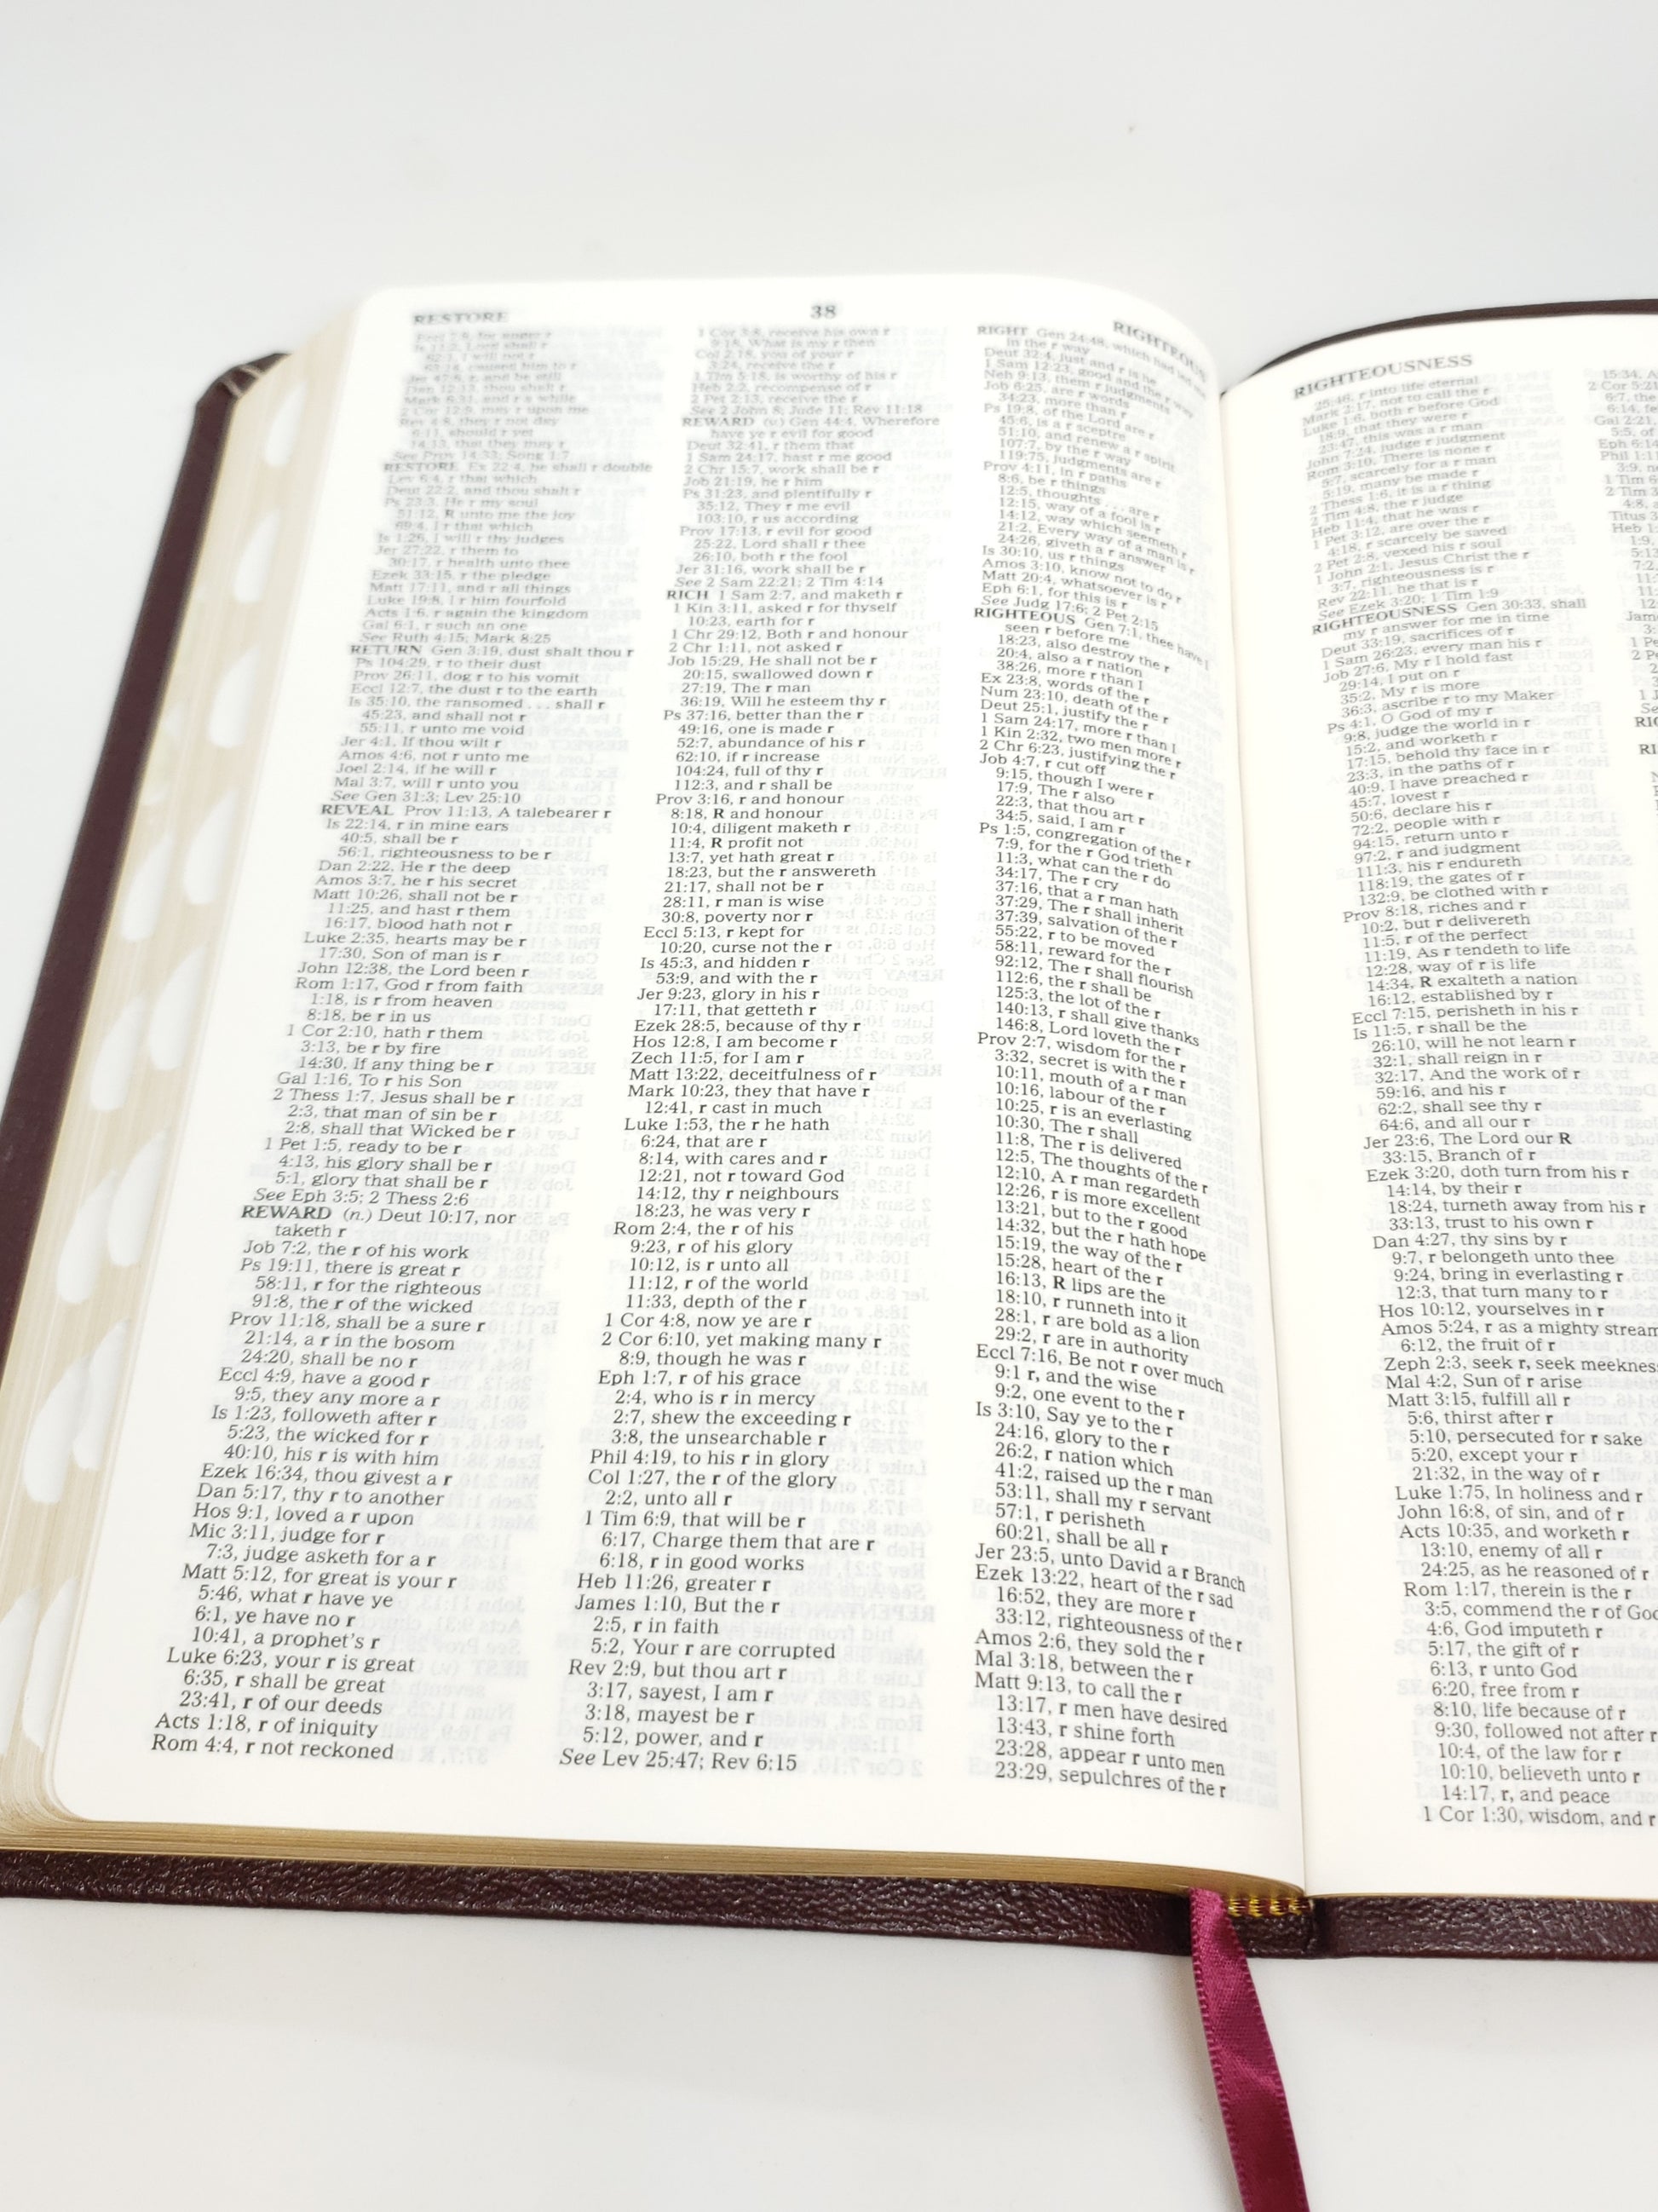 RESTORE
38
RIGHTEOUS
Jer 47:6, r and be still
Dan 12:13, thou shalt r
Mark 6:31, and r a while
2 Cor 12:9, may r upon me
Rev 4:8, they r not day
6:11, should r yet
14:13, that they may r
See Prov 14:33; Song 1:7
RESTORE Ex 22:4, he shall r double
Lev 6:4, r that which
Deut 22:2, and thou shalt r
Ps 23:3, He r my soul
51:12, R unto me the joy
69:4, I r that which
Is 1:26, I will r thy judges
Jer 27:22, r them to
30:17, r health unto thee
Ezek 33:15, r the pledge
Matt 17:11, and r all things
Luke 19:8, I r him fourfold
Acts 1:6, r again the kingdom
Gal 6:1, r such an one
See Ruth 4:15; Mark 8:25
RETURN Gen 3:19, dust shalt thou r
Ps 104:29, r to their dust
Prov 26:11, dog r to his vomit
Eccl 12:7, the dust r to the earth
Is 35:10, the ransomed . . . shall r
45:23, and shall not r
55:11, r unto me void
Jer 4:1, If thou wilt r
Amos 4:6, not r unto me
Joel 2:14, if he will r
Mal 3:7, will r unto you
See Gen 31:3; Lev 25:10
REVEAL Prov 11:13, A talebearer r
Is 22:14, r in mine ears
40:5, shall be r
56:1, righteousness to be r
Dan 2:22, He r the deep
Amos 3:7, he r his secret
Matt 10:26, shall not be r
11:25, and hast r them
16:17, blood hath not r
Luke 2:35, hearts may be r
17:30, Son of man is r
John 12:38, the Lord been r
Rom 1:17, God r from faith
1:18, is r from heaven
8:18, be r in us
1 Cor 2:10, hath r them
3:13, be r by fire
14:30, If any thing be r
Gal 1:16, To r his Son
2 Thess 1:7, Jesus shall be r
2:3, that man of sin be r
2:8, shall that Wicked be r
1 Pet 1:5, ready to be r
4:13, his glory shall be r
5:1, glory that shall be r
See Eph 3:5; 2 Thess 2:6
REWARD (n.) Deut 10:17, nor
taketh r
Job 7:2, the r of his work
Ps 19:11, there is great r
58:11, r for the righteous
91:8, the r of the wicked
Prov 11:18, shall be a sure r
21:14, a r in the bosom
24:20, shall be no r
Eccl 4:9, have a good r
9:5, they any more a r
Is 1:23, followeth after r
5:23, the wicked for r
40:10, his r is with him
Ezek 16:34, thou givest a r
Dan 5:17, thy r to another
Hos 9:1, loved a r upon
Mic 3:11, judge for r
7:3, judge asketh for a r
Matt 5:12, for great is your r
5:46, what r have ye
6:1, ye have no r
10:41, a prophet's r
Luke 6:23, your r is great
6:35, r shall be great
23:41, r of our deeds
Acts 1:18, r of iniquity
Rom 4:4, r not reckoned
1 Cor 3:8, receive his own r
9:18, What is my r then
Col 2:18, you of your r
3:24, receive the r
1 Tim 5:18, is worthy of his r
Heb 2:2, recompense of r
2 Pet 2:13, receive the r
See 2 John 8; Jude 11; Rev 11:18
REWARD (v.) Gen 44:4, Wherefore
have ye r evil for good
Deut 32:41, r them that
1 Sam 24:17, hast r me good
2 Chr 15:7, work shall be r
Job 21:19, he r him
Ps 31:23, and plentifully r
35:12, They r me evil
103:10, r us according
Prov 17:13, r evil for good
25:22, Lord shall r thee
26:10, both r the fool
Jer 31:16, work shall be r
See 2 Sam 22:21; 2 Tim 4:14
RICH 1 Sam 2:7, and maketh r
1 Kin 3:11, asked r for thyself
10:23, earth for r
1 Chr 29:12, Both r and honour
2 Chr 1:11, not asked r
Job 15:29, He shall not be r
20:15, swallowed down r
27:19, The r man
36:19, Will he esteem thy r
Ps 37:16, better than the r
49:16, one is made r
52:7, abundance of his r
62:10, if r increase
104:24, full of thy r
112:3, and r shall be
Prov 3:16, r and honour
8:18, R and honour
10:4, diligent maketh r
11:4, R profit not
13:7, yet hath great r
18:23, but the r answereth
21:17, shall not be r
28:11, r man is wise
30:8, poverty nor r
Eccl 5:13, r kept for
10:20, curse not the r
Is 45:3, and hidden r
53:9, and with the r
Jer 9:23, glory in his r
17:11, that getteth r
Ezek 28:5, because of thy r
Hos 12:8, I am become r
Zech 11:5, for I am r
Matt 13:22, deceitfulness of r
Mark 10:23, they that have r
12:41, r cast in much
Luke 1:53, the r he hath
6:24, that are r
8:14, with cares and r
12:21, not r toward God
14:12, thy r neighbours
18:23, he was very r
Rom 2:4, the r of his
9:23, r of his glory
10:12, is r unto all
11:12, r of the world
11:33, depth of the r
1 Cor 4:8, now ye are r
2 Cor 6:10, yet making many r
8:9, though he was r
Eph 1:7, r of his grace
2:4, who is r in mercy
2:7, shew the exceeding r
3:8, the unsearchable r
Phil 4:19, to his r in glory
Col 1:27, the r of the glory
2:2, unto all r
1 Tim 6:9, that will be r
6:17, Charge them that are r
6:18, r in good works
Heb 11:26, greater r
James 1:10, But the r
2:5, r in faith
5:2, Your r are corrupted
Rev 2:9, but thou art r
3:17, sayest, I am r
3:18, mayest be r
5:12, power, and r
See Lev 25:47; Rev 6:15
RIGHT Gen 24:48, which had led me
in the r way
Deut 32:4, just and r is he
1 Sam 12:23, good and the r way
Neh 9:13, them r judgments
Job 6:25, are r words
34:23, more than r
Ps 19:8, of the Lord are r
45:6, is a r sceptre
51:10, and renew a r spirit
107:7, by the r way
119:75, judgments are r
Prov 4:11, in r paths
8:6, be r things
12:5, thoughts . . . are r
12:15, way of a fool is r
14:12, way which seemeth r
21:2, Every way of a man is r
24:26, giveth a r answer
Is 30:10, us r things
Amos 3:10, know not to do r
Matt 20:4, whatsoever is r
Eph 6:1, for this is r
See Judg 17:6; 2 Pet 2:15
RIGHTEOUS Gen 7:1, thee have I
seen r before me
18:23, also destroy the r
20:4, also a r nation
38:26, more r than I
Ex 23:8, words of the r
Num 23:10, death of the r
Deut 25:1, justify the r
1 Sam 24:17, more r than I
1 Kin 2:32, two men more r
2 Chr 6:23, justifying the r
Job 4:7, r cut off
9:15, though I were r
17:9, The r also
22:3, that thou art r
34:5, said, I am r
Ps 1:5, congregation of the r
7:9, for the r God trieth
11:3, what can the r do
34:17, The r cry
37:16, that a r man hath
37:29, The r shall inherit
37:39, salvation of the r
55:22, r to be moved
58:11, reward for the r
92:12, The r shall flourish
112:6, the r shall be
125:3, the lot of the r
140:13, r shall give thanks
146:8, Lord loveth the r
Prov 2:7, wisdom for the r
3:32, secret is with the r
10:11, mouth of a r man
10:16, labour of the r
10:25, r is an everlasting
10:30, The r shall
11:8, The r is delivered
12:5, The thoughts of the r
12:10, A r man regardeth
12:26, r is more excellent
13:21, but to the r good
14:32, but the r hath hope
15:19, the way of the r
15:28, heart of the r
16:13, R lips are the
18:10, r runneth into it
28:1, r are bold as a lion
29:2, r are in authority
Eccl 7:16, Be not r over much
9:1 r, and the wise
9:2, one event to the r
Is 3:10, Say ye to the r
24:16, glory to the r
26:2, r nation which
41:2, raised up the r man
53:11, shall my r servant
57:1, r perisheth
60:21, shall be all r
Jer 23:5, unto David a r Branch
Ezek 13:22, heart of the r sad
16:52, they are more r
33:12, righteousness of the r
Amos 2:6, they sold the r
Mal 3:18, between the r
Matt 9:13, to call the r
13:17, r men have desired
13:43, r shine forth
23:28, appear r unto men
23:29, sepulchres of the r
RIGHTEOUSNESS
25:46, r into life eternal
Mark 2:17, not to call the r
Luke 1:6, both r before God
18:9, that they were r
23:47, this was a r man
John 7:24, judge r judgment
Rom 3:10, There is none r
5:7, scarcely for a r man
5:19, many be made r
2 Thess 1:6, it is a r thing
2 Tim 4:8, the r judge
Heb 11:4, that he was r
1 Pet 3:12, are over the r
4:18, r scarcely be saved
2 Pet 2:8, vexed his r soul
1 John 2:1, Jesus Christ the r
3:7, righteousness is r
Rev 22:11, he that is r
See Ezek 3:20; 1 Tim 1:9
RIGHTEOUSNESS Gen 30:33, shall
my r answer for me in time
Deut 33:19, sacrifices of r
1 Sam 26:23, every man his r
Job 27:6, My r I hold fast
29:14, I put on r
35:2, My r is more
36:3, ascribe r to my Maker
Ps 4:1, O God of my r
9:8, judge the world in r
15:2, and worketh r
17:15, behold thy face in r
23:3, in the paths of r
40:9, I have preached r
45:7, lovest r
50:6, declare his r
72:2, people with r
94:15, return unto r
97:2, r and judgment
111:3, his r endureth
118:19, the gates of r
132:9, be clothed with r
Prov 8:18, riches and r
10:2, but r delivereth
11:5, r of the perfect
11:19, As r tendeth to life
12:28, way of r is life
14:34, R exalteth a nation
16:12, established by r
Eccl 7:15, perisheth in his r
Is 11:5, r shall be the
26:10, will he not learn r
32:1, shall reign in r
32:17, And the work of r
59:16, and his r
62:2, shall see thy r
64:6, and all our r
Jer 23:6, The Lord our R
33:15, Branch of r
Ezek 3:20, doth turn from his r
14:14, by their r
18:24, turneth away from his r
33:13, trust to his own r
Dan 4:27, thy sins by r
9:7, r belongeth unto thee
9:24, bring in everlasting r
12:3, that turn many to r
Hos 10:12, yourselves in r
Amos 5:24, r as a mighty stream
6:12, the fruit of r
Zeph 2:3, seek r, seek meekness
Mal 4:2, Sun of r arise
Matt 3:15, fulfill all r
5:6, thirst after r
5:10, persecuted for r sake
5:20, except your r
21:32, in the way of r
Luke 1:75, In holiness and r
John 16:8, of sin, and of r
Acts 10:35, and worketh r
13:10, enemy of all r
24:25, as he reasoned of r
Rom 1:17, therein is the r
3:5, commend the r of God
4:6, God imputeth r
5:17, the gift of r
6:13, r unto God
6:20, free from r
8:10, life because of r
9:30, followed not after r
10:4, of the law for r
10:10, believeth unto r
14:17, r, and peace
1 Cor 1:30, wisdom, and r
15:34, A
2 Cor 5:21
6:7, the
6:14, fe
Gal 2:21,
5:5, of
Eph 6:14
Phil 1:11
3:9, n
1 Tim 6
2 Tim 3
4:8, a
Titus 3
Heb 1:
1:9,
5:13
7:2,
11:
12:
Jame
3:
1 Pe
2 P